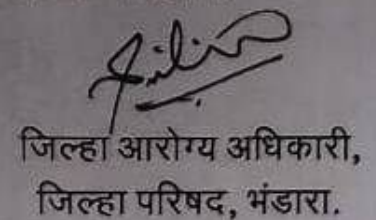 जिल्हा आरोग्य अधिकारी,
जिल्हा परिषद, भंडारा.